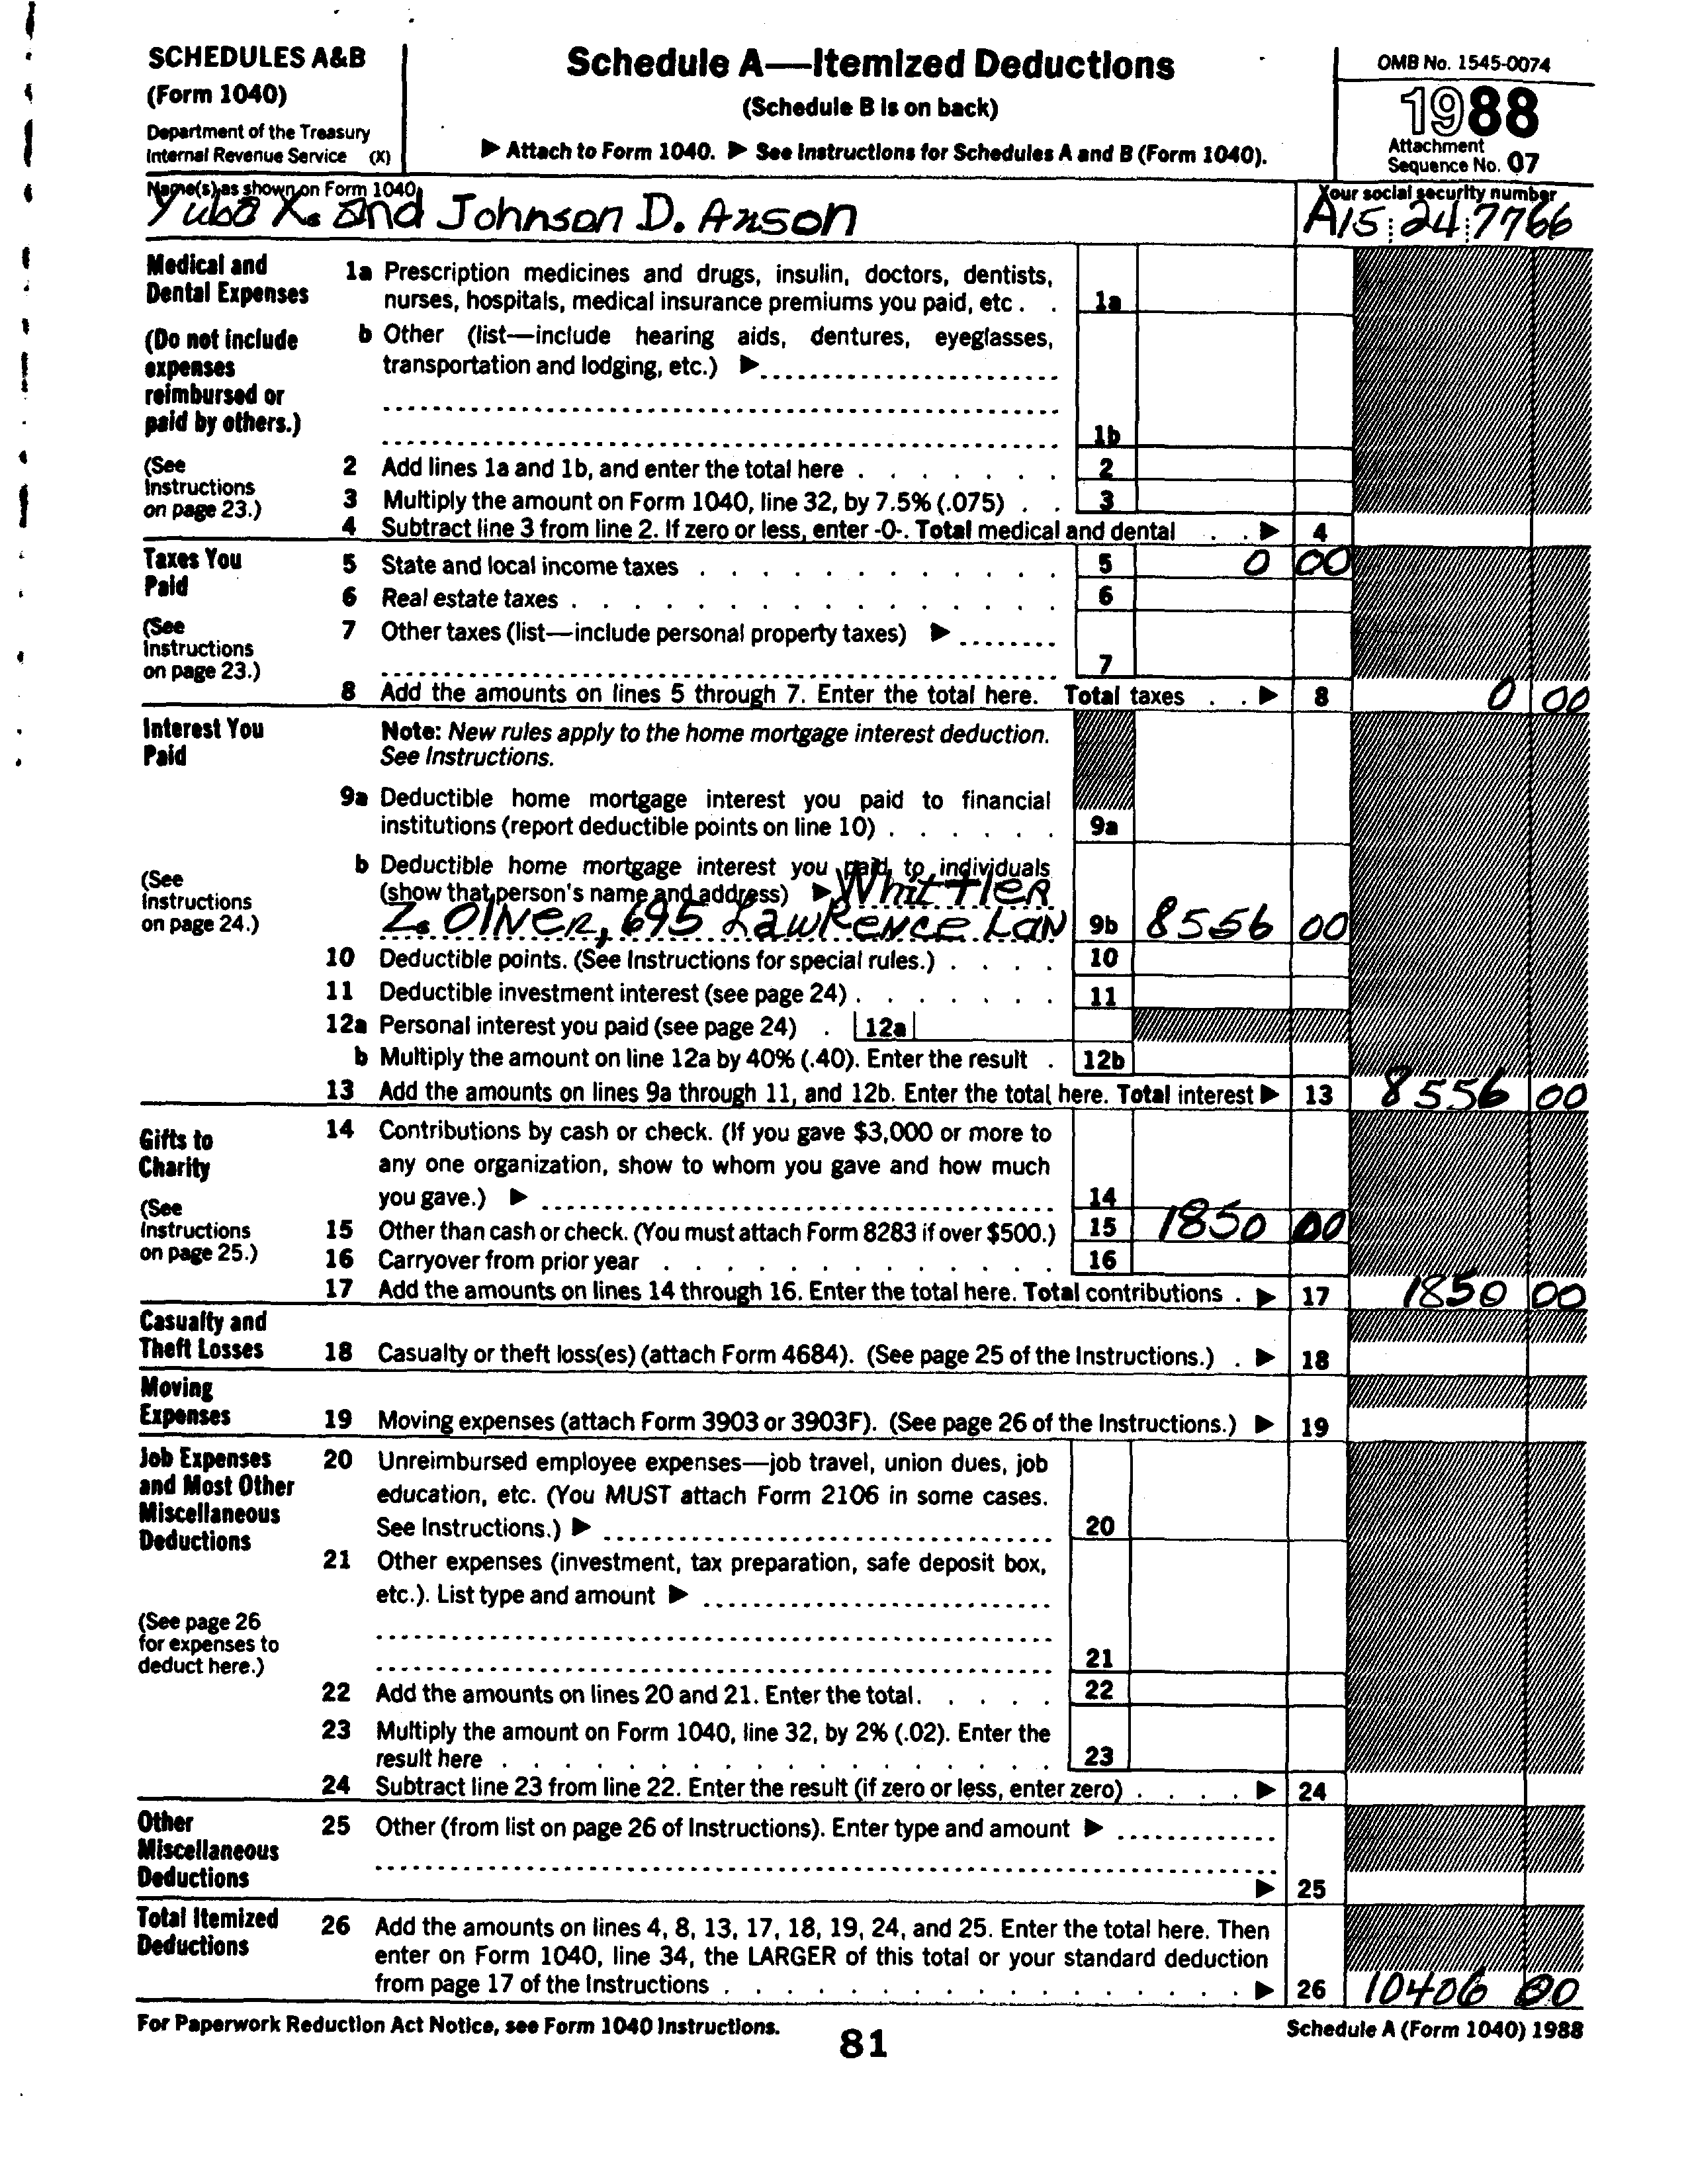 SCHEDULES A&B
(Form 1040)
Department of the Treasury
Internal Revenue Service (X)
Schedule A—Itemized Deductions
(Schedule B is on back)
▶ Attach to Form 1040. ▶ See Instructions for Schedules A and B (Form 1040).
OMB No. 1545-0074
1988
Attachment
Sequence No. 07
Name(s) as shown on Form 1040
Yuba X. and Johnson D. Anson
Your social security number
A15 24 7766
Medical and
Dental Expenses
(Do not include
expenses
reimbursed or
paid by others.)
(See
Instructions
on page 23.)
1a Prescription medicines and drugs, insulin, doctors, dentists,
nurses, hospitals, medical insurance premiums you paid, etc . . 1a
b Other (list—include hearing aids, dentures, eyeglasses,
transportation and lodging, etc.) ▶
1b
2 Add lines 1a and 1b, and enter the total here . . . . . . . 2
3 Multiply the amount on Form 1040, line 32, by 7.5% (.075) . . 3
4 Subtract line 3 from line 2. If zero or less, enter -0-. Total medical and dental . . ▶ 4
Taxes You
Paid
(See
Instructions
on page 23.)
5 State and local income taxes . . . . . . . . . . . . 5 0 00
6 Real estate taxes . . . . . . . . . . . . . . . . 6
7 Other taxes (list—include personal property taxes) ▶
7
8 Add the amounts on lines 5 through 7. Enter the total here. Total taxes . . ▶ 8 0 00
Interest You
Paid
(See
Instructions
on page 24.)
Note: New rules apply to the home mortgage interest deduction.
See Instructions.
9a Deductible home mortgage interest you paid to financial
institutions (report deductible points on line 10) . . . . . . 9a
b Deductible home mortgage interest you paid to individuals
(show that person's name and address) ▶ Whittier
Z. Oliver, 695 Lawrence Lan 9b 8556 00
10 Deductible points. (See Instructions for special rules.) . . . . 10
11 Deductible investment interest (see page 24) . . . . . . . 11
12a Personal interest you paid (see page 24) . 12a
b Multiply the amount on line 12a by 40% (.40). Enter the result . 12b
13 Add the amounts on lines 9a through 11, and 12b. Enter the total here. Total interest ▶ 13 8556 00
Gifts to
Charity
(See
Instructions
on page 25.)
14 Contributions by cash or check. (If you gave $3,000 or more to
any one organization, show to whom you gave and how much
you gave.) ▶ 14
15 Other than cash or check. (You must attach Form 8283 if over $500.) 15 1850 00
16 Carryover from prior year . . . . . . . . . . . . . 16
17 Add the amounts on lines 14 through 16. Enter the total here. Total contributions . ▶ 17 1850 00
Casualty and
Theft Losses
18 Casualty or theft loss(es) (attach Form 4684). (See page 25 of the Instructions.) . ▶ 18
Moving
Expenses
19 Moving expenses (attach Form 3903 or 3903F). (See page 26 of the Instructions.) ▶ 19
Job Expenses
and Most Other
Miscellaneous
Deductions
(See page 26
for expenses to
deduct here.)
20 Unreimbursed employee expenses—job travel, union dues, job
education, etc. (You MUST attach Form 2106 in some cases.
See Instructions.) ▶ 20
21 Other expenses (investment, tax preparation, safe deposit box,
etc.). List type and amount ▶
21
22 Add the amounts on lines 20 and 21. Enter the total. . . . . 22
23 Multiply the amount on Form 1040, line 32, by 2% (.02). Enter the
result here . . . . . . . . . . . . . . . . . . 23
24 Subtract line 23 from line 22. Enter the result (if zero or less, enter zero) . . . . ▶ 24
Other
Miscellaneous
Deductions
25 Other (from list on page 26 of Instructions). Enter type and amount ▶
▶ 25
Total Itemized
Deductions
26 Add the amounts on lines 4, 8, 13, 17, 18, 19, 24, and 25. Enter the total here. Then
enter on Form 1040, line 34, the LARGER of this total or your standard deduction
from page 17 of the Instructions . . . . . . . . . . . . . . . . . ▶ 26 10406 00
For Paperwork Reduction Act Notice, see Form 1040 Instructions.
81
Schedule A (Form 1040) 1988